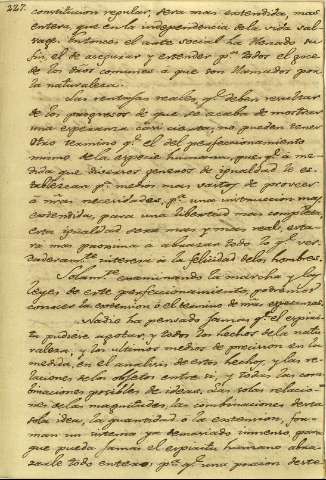 227.
constitucion regular, sera mas extendida, mas
entera, que en la independencia de la vida sal-
vage. Entonces el arte social ha llenado su
fin, el de asegurar y extender p.ª todos el goce
de los dros comunes à que son llamados por
la naturaleza.
Las ventajas reales, q.e deben resultar
de los progresos de que se acaba de mostrar
una esperanza casi cierta, no pueden tener
otro termino q.e el del perfeccionamiento
mismo de la especie humana, pues q.e à me-
dida que diversos generos de igualdad le es-
tablezcan p.r medios mas vastos de proveer
à nras necesidades, p.r una instruccion mas
extendida, para una libertad mas completa,
esta igualdad sera mas y mas real, esta-
ra mas proxima à abrazar todo lo q.e ver-
daderam.te interesa à la felicidad de los hombres.
Solam.te examinando la marcha y las
leyes de este perfeccionamiento, podremos
conocer la extension ó el termino de nras esperanzas.
Nadie ha pensado jamas q.e el espiri-
tu pudiese agotar, y todos los hechos de la natu-
raleza, y los ultimos medios de precision en la
medida, en el analisis de estos hechos, y las re-
laciones de los objetos entre si, y todas las com-
binaciones posibles de ideas. Las solas relacio-
nes de las magnitudes, las combinaciones de esta
sola idea, la quantidad ó la extension, for-
man un sistema ya demasiado inmenso para
que pueda jamas el espiritu humano abra-
zarle todo entero: p.r q.e una porcion de este